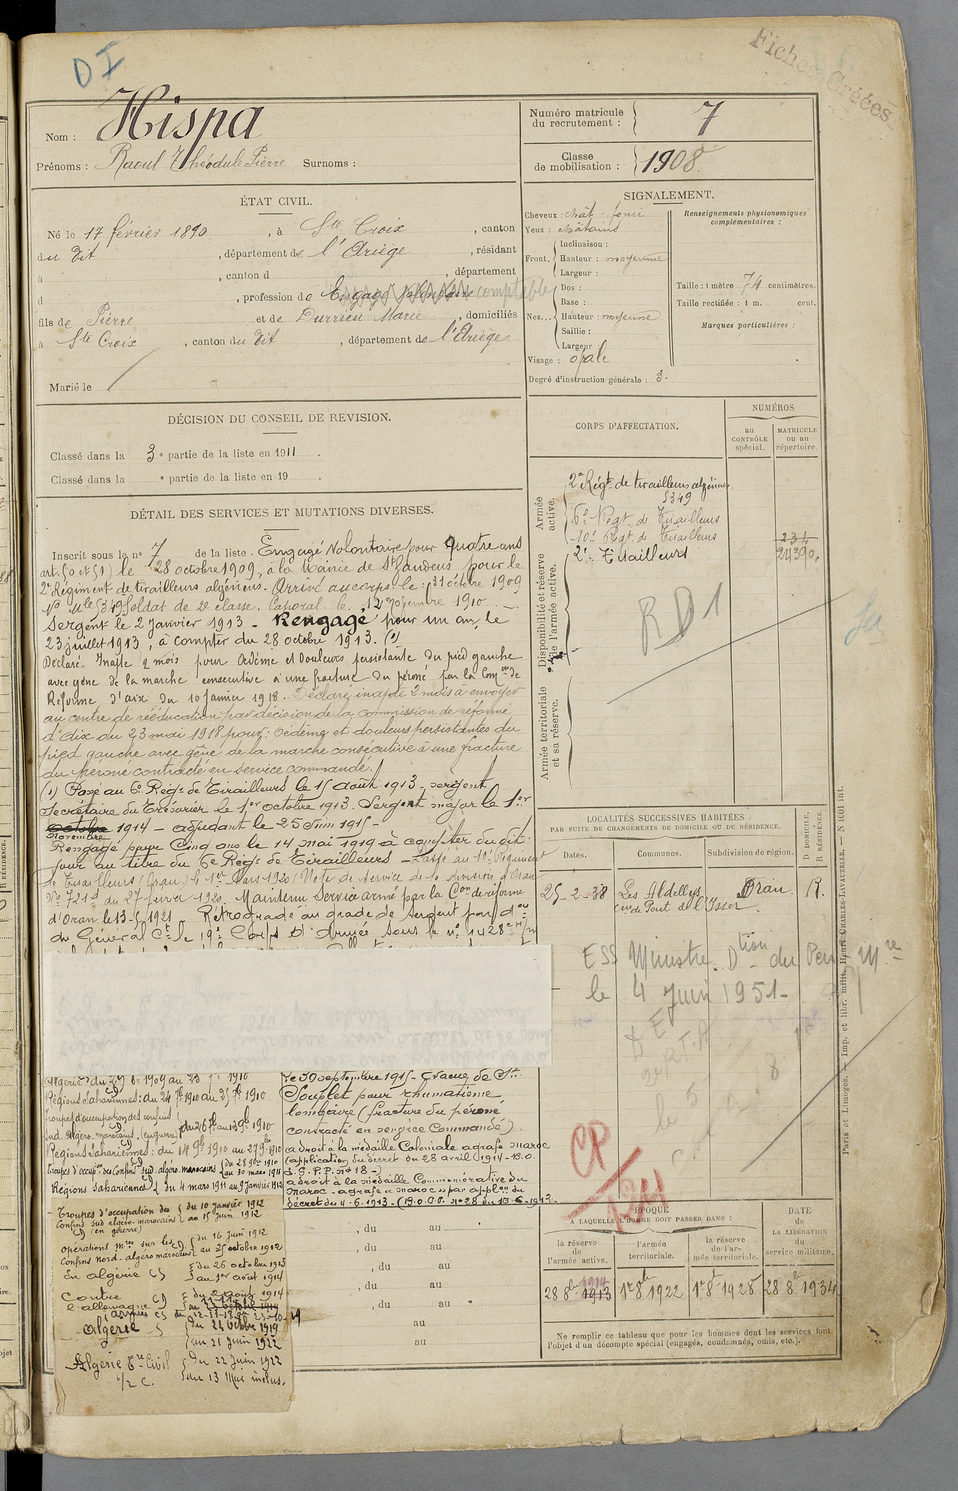 DI
Fiches créées
Nom : Hispa
Prénoms : Raoul Théodule Pierre Surnoms :
Numéro matricule du recrutement : 7
Classe de mobilisation : 1908
ÉTAT CIVIL.
Né le 17 février 1890, à Ste Croix, canton
du dit, département de l'Ariège, résidant
à , canton d , département
d , profession de Engagé Volontaire comptable
fils de Pierre et de Durrieu Marie, domiciliés
à Ste Croix, canton du dit, département de l'Ariège
Marié le
SIGNALEMENT.
Cheveux : chât. foncé
Yeux : châtains
Front. Inclinaison :
Hauteur : moyenne
Largeur :
Nez... Dos :
Base :
Hauteur : moyenne
Saillie :
Largeur :
Visage : ovale
Degré d'instruction générale : 3.
Renseignements physionomiques complémentaires :
Taille : 1 mètre 74 centimètres.
Taille rectifiée : 1 m. cent.
Marques particulières :
DÉCISION DU CONSEIL DE REVISION.
Classé dans la 3e partie de la liste en 1911.
Classé dans la e partie de la liste en 19 .
CORPS D'AFFECTATION.
NUMÉROS
au CONTRÔLE spécial.
MATRICULE ou au répertoire.
Armée active.
2e Régt de tirailleurs algériens
5349
6e Régt de Tirailleurs
10e Régt de Tirailleurs 234
2e Tirailleurs 24390
Disponibilité et réserve de l'armée active.
RD1
Armée territoriale et sa réserve.
DÉTAIL DES SERVICES ET MUTATIONS DIVERSES.
Inscrit sous le n° 7 de la liste. Engagé Volontaire pour quatre ans
art. 50 et 51) le 28 octobre 1909, à la Mairie de St Gaudens pour le
2e Régiment de tirailleurs algériens. Arrivé au corps le : 31 octobre 1909
No Mle 5349 Soldat de 2e classe. Caporal le 12 novembre 1910.
Sergent le 2 Janvier 1913 - Rengagé pour un an, le
23 juillet 1913, à compter du 28 octobre 1913. (1)
Déclaré Inapte 2 mois pour œdème et douleurs persistante du pied gauche
avec gêne de la marche consecutive à une fracture du péroné par la Comon de
Réforme d'Aix du 10 Janvier 1918. Déclaré inapte 2 mois à envoyer
au centre de rééducation par décision de la commission de réforme
d'Aix du 23 mai 1918 pour : œdème et douleurs persistantes du
pied gauche avec gêne de la marche consécutive à une fracture
du péroné contracté en service commandé.
(1) Passé au 6e Regt de Tirailleurs le 15 août 1913 - sergent
secrétaire du Trésorier le 1er octobre 1913. Sergent major le 1er
octobre novembre 1914 - adjudant le 25 Juin 1915 -
Rengagé pour Cinq ans le 14 mai 1919 à compter du dit
jour au titre du 6e Regt de Tirailleurs - Passé au 10e Régiment
de Tirailleurs (Oran) le 1er Mars 1920 (Note de Service de la division d'Oran
No 721 d du 27 février 1920. Maintenu Service armé par la Con de réforme
d'Oran le 13-5-1921. Rétrogradé au grade de Sergent par don
du Général Ct le 19e Corps d'Armée sous le no 1428
Algérie du 29 8-1909 au 23 7bre 1910
Régions Sahariennes : du 24 7bre 1910 au 25 7bre 1910
Troupes d'occupation des confins
Sud. Algéro-marocains (en guerre) du 26 7bre au 13 9bre 1910
Régions Sahariennes : du 14 9b 1910 au 27 9b 1910
Troupes d'occupon des Confins sud algéro-marocains du 28 9bre 1910 au 30 mars 1911
Régions Sahariennes du 4 mars 1911 au 9 janvier 1912
Troupes d'occupation des Confins Sud algéro-marocains (en guerre) du 10 Janvier 1912 au 15 Juin 1912
Opérations mres sur les Confins Nord-algero marocains du 16 Juin 1912 au 25 octobre 1912
En algérie du 26 octobre 1913 au 1er août 1914
Contre l'allemagne du 2 août 1914
Algérie du 24 octobre 1919 au 21 juin 1922
Algérie Sre Civil du 22 Juin 1922
1/2 C. au 13 Mai inclus.
le 30 septembre 1915 - Evacué de St
Souplet pour rhumatisme
lombaire (fracture du péroné
contracté en service Commandé)
a droit à la médaille Coloniale agrafe Maroc
(application du décret du 28 avril 1914 - B.O.
E.S.P.P. no 18 -)
a droit à la médaille Commémorative du
Maroc - agrafe "Maroc" par applon du
décret du 4-6-1913 - (B.O.O.P. no 28 du 10-6-1913.
, du au
, du au
, du au
, du au
au
au
LOCALITÉS SUCCESSIVES HABITÉES
PAR SUITE DE CHANGEMENTS DE DOMICILE OU DE RÉSIDENCE.
Dates. Communes. Subdivision de région. D DOMICILE, R RÉSIDENCE.
25-2-38 Les Abdellys Oran. R.
cne de Pont de l'Isser
ESS Ministre Dtion du Pen Mre
le 4 Juin 1951 -
CP
ÉPOQUE
A LAQUELLE L'HOMME DOIT PASSER DANS :
la réserve de l'armée active.
l'armée territoriale.
la réserve de l'armée territoriale.
DATE de LA LIBÉRATION du service militaire.
28 8b 1913 1er 8b 1922 1er 8b 1928 28 8b 1934
Ne remplir ce tableau que pour les hommes dont les services font
l'objet d'un décompte spécial (engagés, condamnés, omis, etc.).
Paris et Limoges. — Imp. et libr. milit. Henri CHARLES-LAVAUZELLE. — N 1601 int.